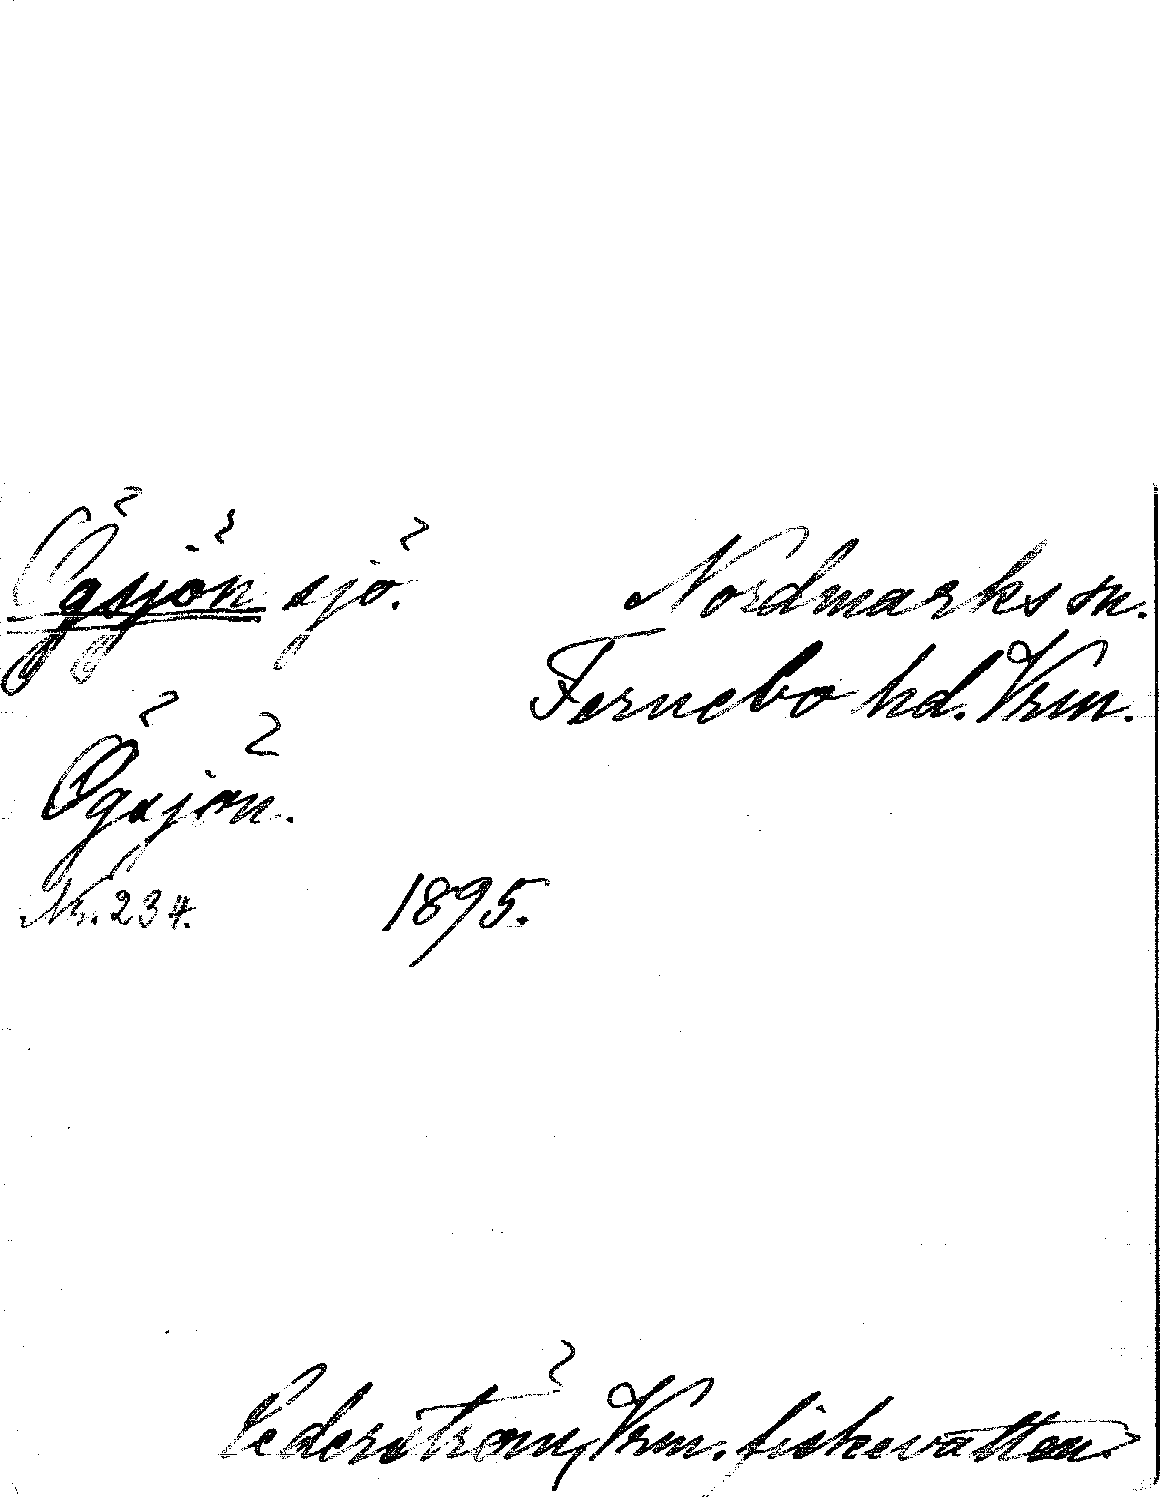 Ögsjön sjö. Nordmarks sn.
Fernebo hd. Vrm.
Ögsjön.
Nr. 234. 1895.
Cederström, Vrm. fiskevatten